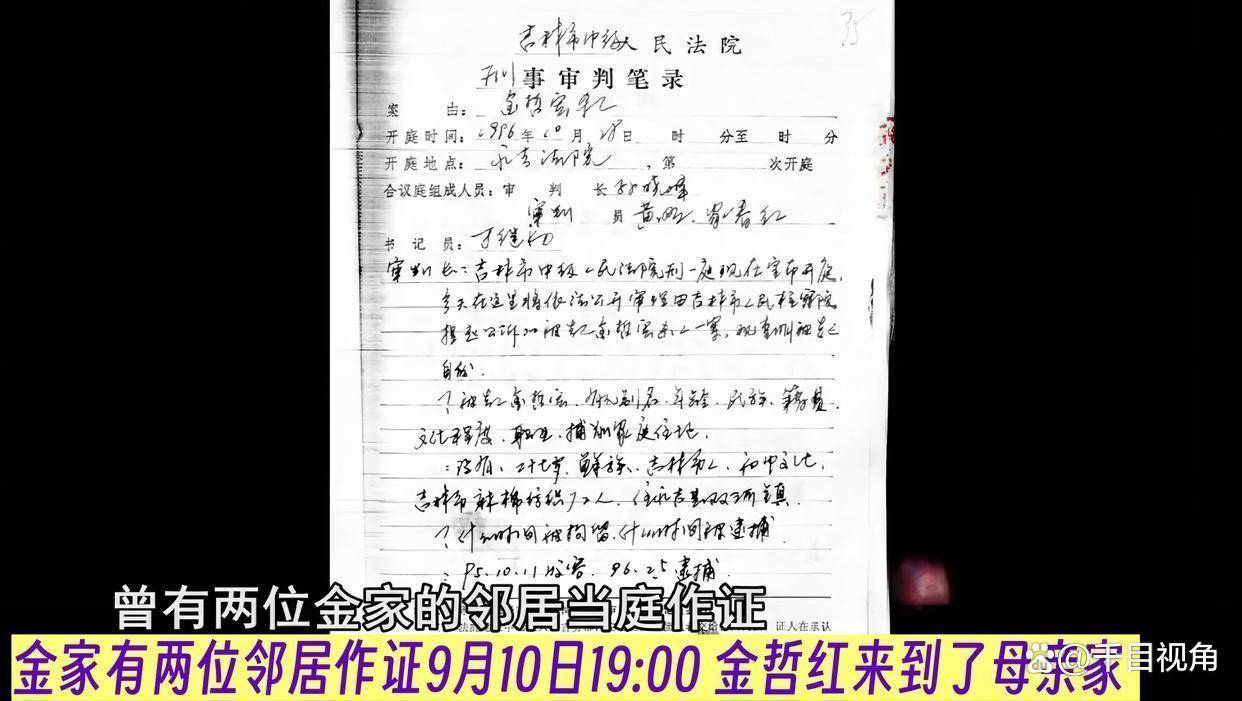 吉林市中级人民法院
刑事审判笔录
35
案 由:金哲宏杀人
开庭时间:1996年10月28日 时 分至 时 分
开庭地点:永吉法院 ,第 次开庭
合议庭组成人员:审 判 长 孙晓峰
审判 员 黄 春红
书 记 员:于继
审判长:吉林市中级人民法院刑一庭现在宣布开庭,
今天在这里将依法公开审理由吉林市人民检察院
提起公诉的被告金哲宏杀人一案,现查明被告
自然.
?被告金哲宏、有无别名、年龄、民族、籍贯、
文化程度、职业、捕前家庭住址.
:没有、二十七岁、鲜族、吉林市人、初中文化,
吉林市麻棉纺织厂工人,住永吉县双河镇.
?什么时间被拘留,什么时间被逮捕
:95.10.11收容. 96.2.5逮捕.
证人在承认
曾有两位金家的邻居当庭作证
金家有两位邻居作证9月10日19:00 金哲红来到了母亲家
@于目视角